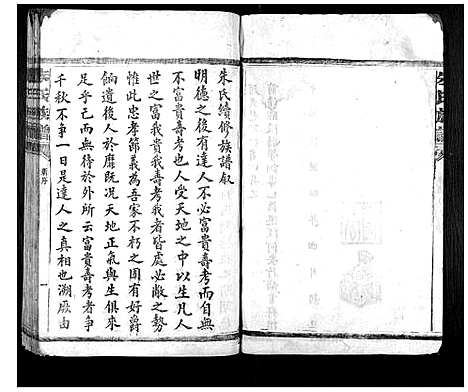 朱氏續修族譜叙
明德之後有達人不必富貴壽考而自無
不富貴壽考也人受天地之中以生凡人
世之富我貴我壽考我者皆處必敝之勢
惟此忠孝節義為吾家不朽之固有好爵
餉遺後人於靡既況天地正氣與生俱來
足乎己而無待於外所云富貴壽考者爭
千秋不爭一日是達人之真相也溯厥由
朱氏族譜
新序
一